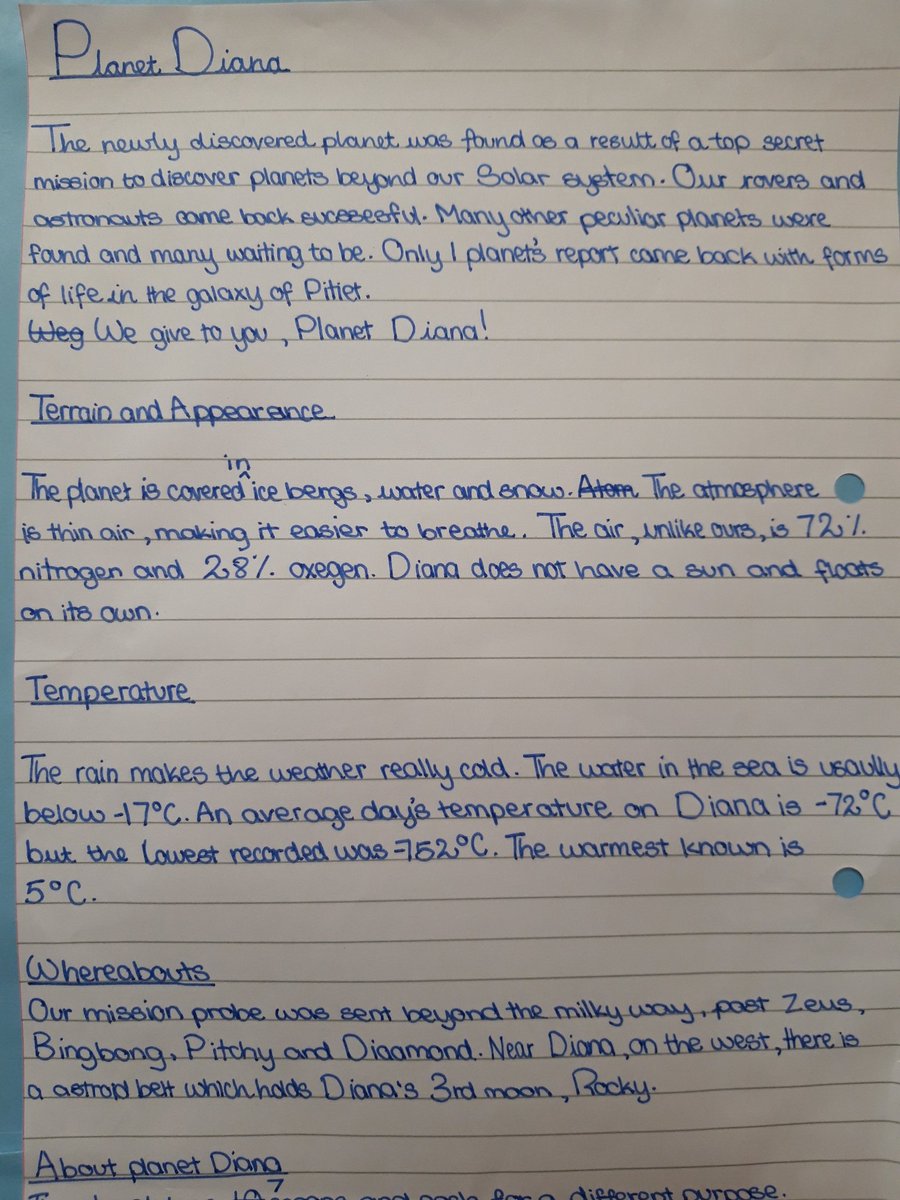 Planet Diana
The newly discovered planet was found as a result of a top secret
mission to discover planets beyond our Solar system. Our rovers and
astronauts came back sucessesful. Many other peculiar planets were
found and many waiting to be. Only 1 planet's report came back with forms
of life in the galaxy of Pitiet.
Weg We give to you, Planet Diana!
Terrain and Appearance
in
The planet is covered ^ ice bergs, water and snow. Atom The atmosphere
is thin air, making it easier to breathe. The air, unlike ours, is 72%
nitrogen and 28% oxegen. Diana does not have a sun and floats
on its own.
Temperature
The rain makes the weather really cold. The water in the sea is usaully
below -17°C. An average day's temperature on Diana is -72°C
but the lowest recorded was -152°C. The warmest known is
5°C.
Whereabouts
Our mission probe was sent beyond the milky way, past Zeus,
Bingbong, Pitchy and Diaamond. Near Diana, on the west, there is
a astroid belt which holds Diana's 3rd moon, Rocky.
About planet Diana
and for a different purpose.